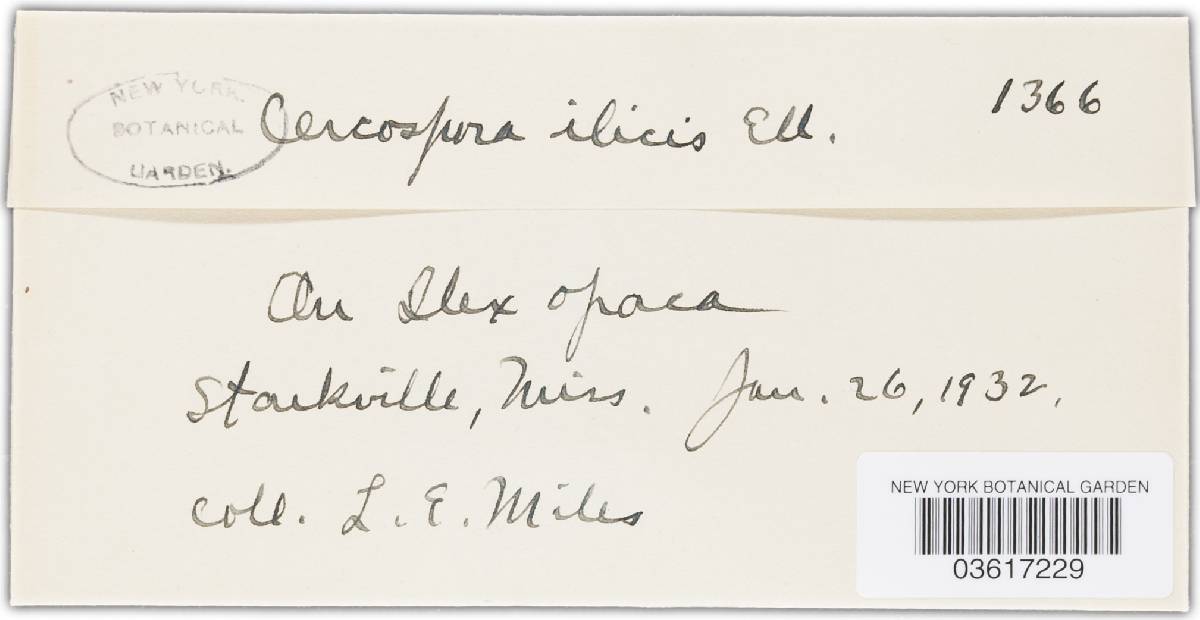 NEW YORK
BOTANICAL
GARDEN.
Cercospora ilicis Ell.
1366
On Ilex opaca
Starkville, Miss. Jan. 26, 1932.
coll. L. E. Miles
NEW YORK BOTANICAL GARDEN
03617229